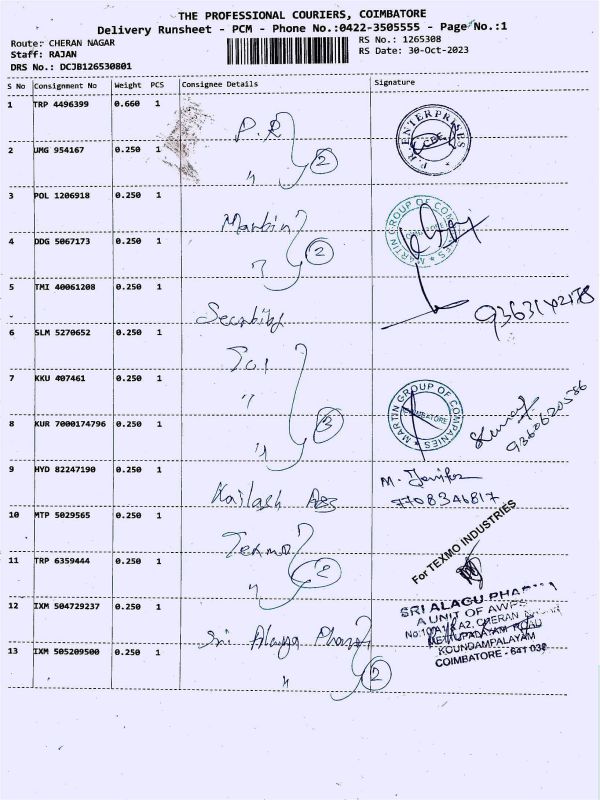 THE PROFESSIONAL COURIERS, COIMBATORE
Delivery Runsheet - PCM - Phone No.:0422-3505555 - Page No.:1
Route: CHERAN NAGAR
RS No.: 1265308
Staff: RAJAN
RS Date: 30-Oct-2023
DRS No.: DCJB126530801
S No Consignment No Weight PCS Consignee Details Signature
1 TRP 4496399 0.660 1 P.R
P.R. ENTERPRISES
CBE
2 UMG 954167 0.250 1 " 2
3 POL 1206918 0.250 1 Martin
MARTIN GROUP OF COMPANIES
4 DDG 5067173 0.250 1 " 2
5 TMI 40061208 0.250 1 Security
9363142178
6 SLM 5270652 0.250 1
7 KKU 407461 0.250 1 "
MARTIN GROUP OF COMPANIES
COIMBATORE
Kumar
9360620586
8 KUR 7000174796 0.250 1 " 3
9 HYD 82247190 0.250 1 Kailash
M. Jenifer
7708346817
10 MTP 5029565 0.250 1 Texmo
For TEXMO INDUSTRIES
11 TRP 6359444 0.250 1 " 2
12 IXM 504729237 0.250 1 Sri Alagu Pharma
SRI ALAGU PHARMA
A UNIT OF AWPS
No:10/A1 & A2, CHERAN NAGAR
METTUPALAYAM ROAD
KOUNDAMPALAYAM
COIMBATORE - 641 030
13 IXM 505209500 0.250 1 " 2